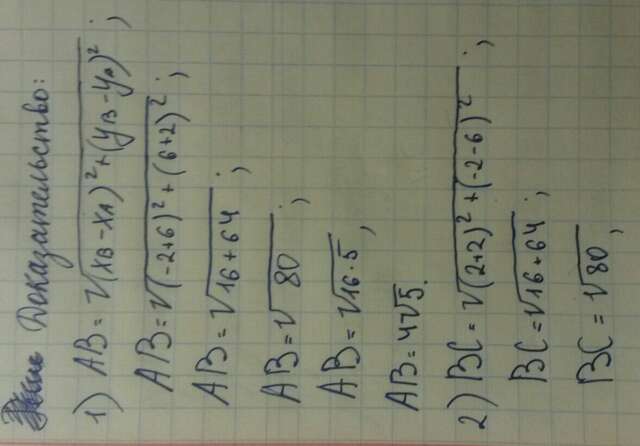 Доказательство:
1) AB = √(xB - xA)² + (yB - yA)² ;
AB = √(-2+6)² + (6+2)² ;
AB = √16+64 ;
AB = √80 ;
AB = √16·5 ;
AB = 4√5.
2) BC = √(2+2)² + (-2-6)² ;
BC = √16+64 ;
BC = √80 ;